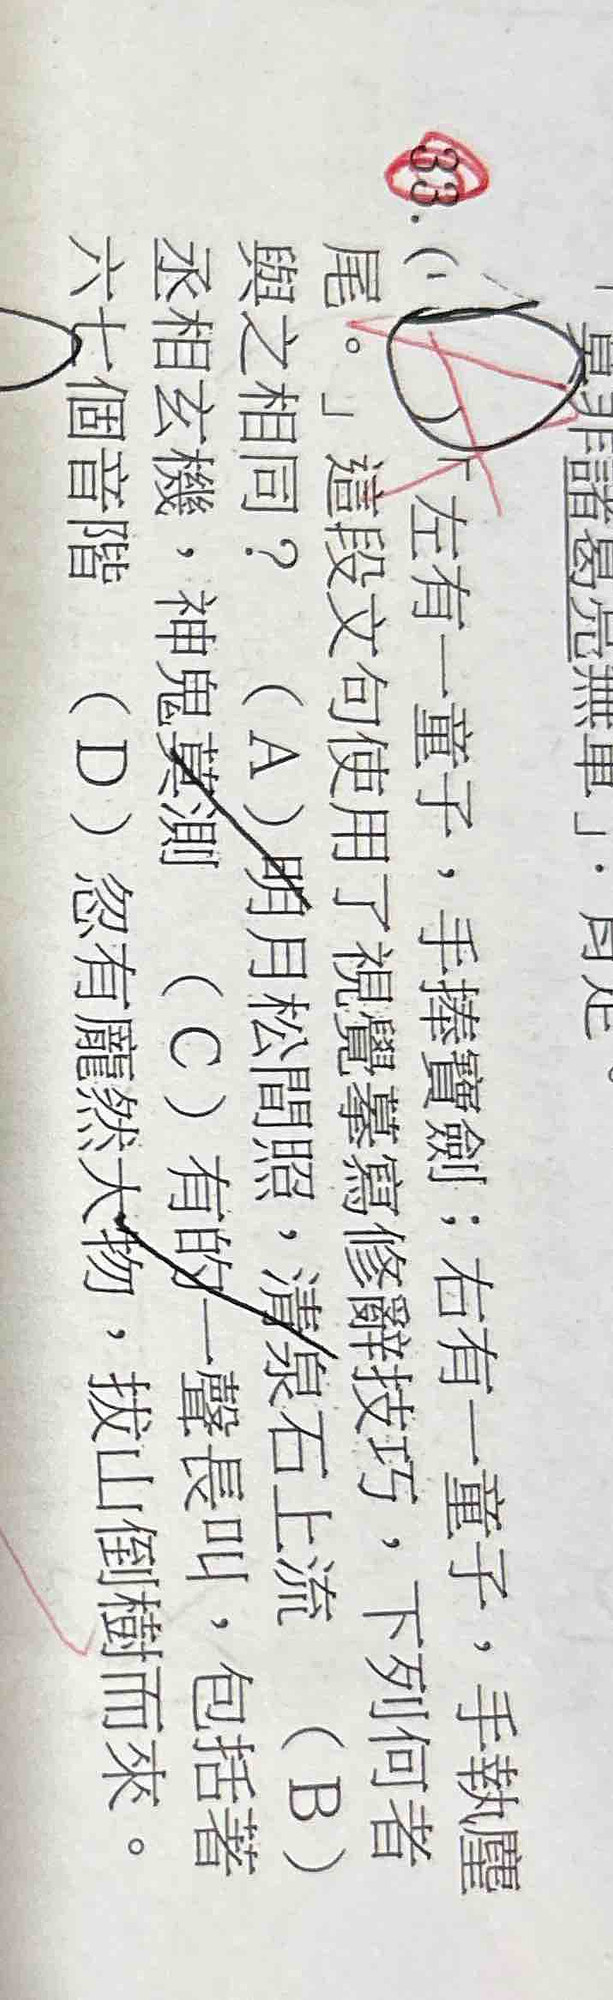 真非諸葛亮無車」，司定。
33.（ ）「左有一童子，手捧寶劍；右有一童子，手執麈
尾。」這段文句使用了視覺摹寫修辭技巧，下列何者
與之相同？（A）明月松間照，清泉石上流（B）
丞相玄機，神鬼莫測（C）有的一聲長叫，包括著
六七個音階（D）忽有龐然大物，拔山倒樹而來。